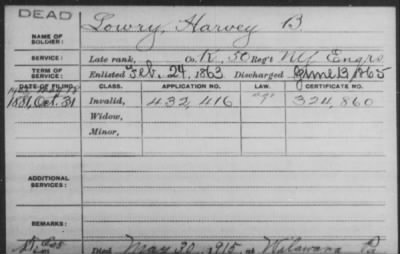 DEAD
NAME OF SOLDIER: Lowry, Harvey B
SERVICE: Late rank, Co. K, 50 Reg't N.Y. Engrs
TERM OF SERVICE: Enlisted Feb. 24, 1863 Discharged June 13, 1865
DATE OF FILING. CLASS. APPLICATION NO. LAW. CERTIFICATE NO.
1881, Oct. 31 Invalid, 432,416 "G" 324,860
Widow,
Minor,
ADDITIONAL SERVICES:
REMARKS:
Died May 30, 1915, at Wilawana Pa